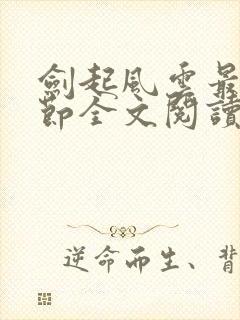 劍起風雲最
節全文閱讀
逆命而生、背